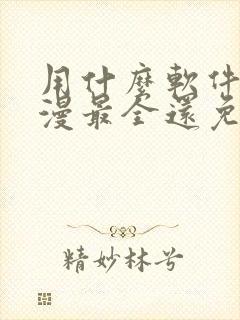 用什麼軟件
漫最全還免
精妙林兮